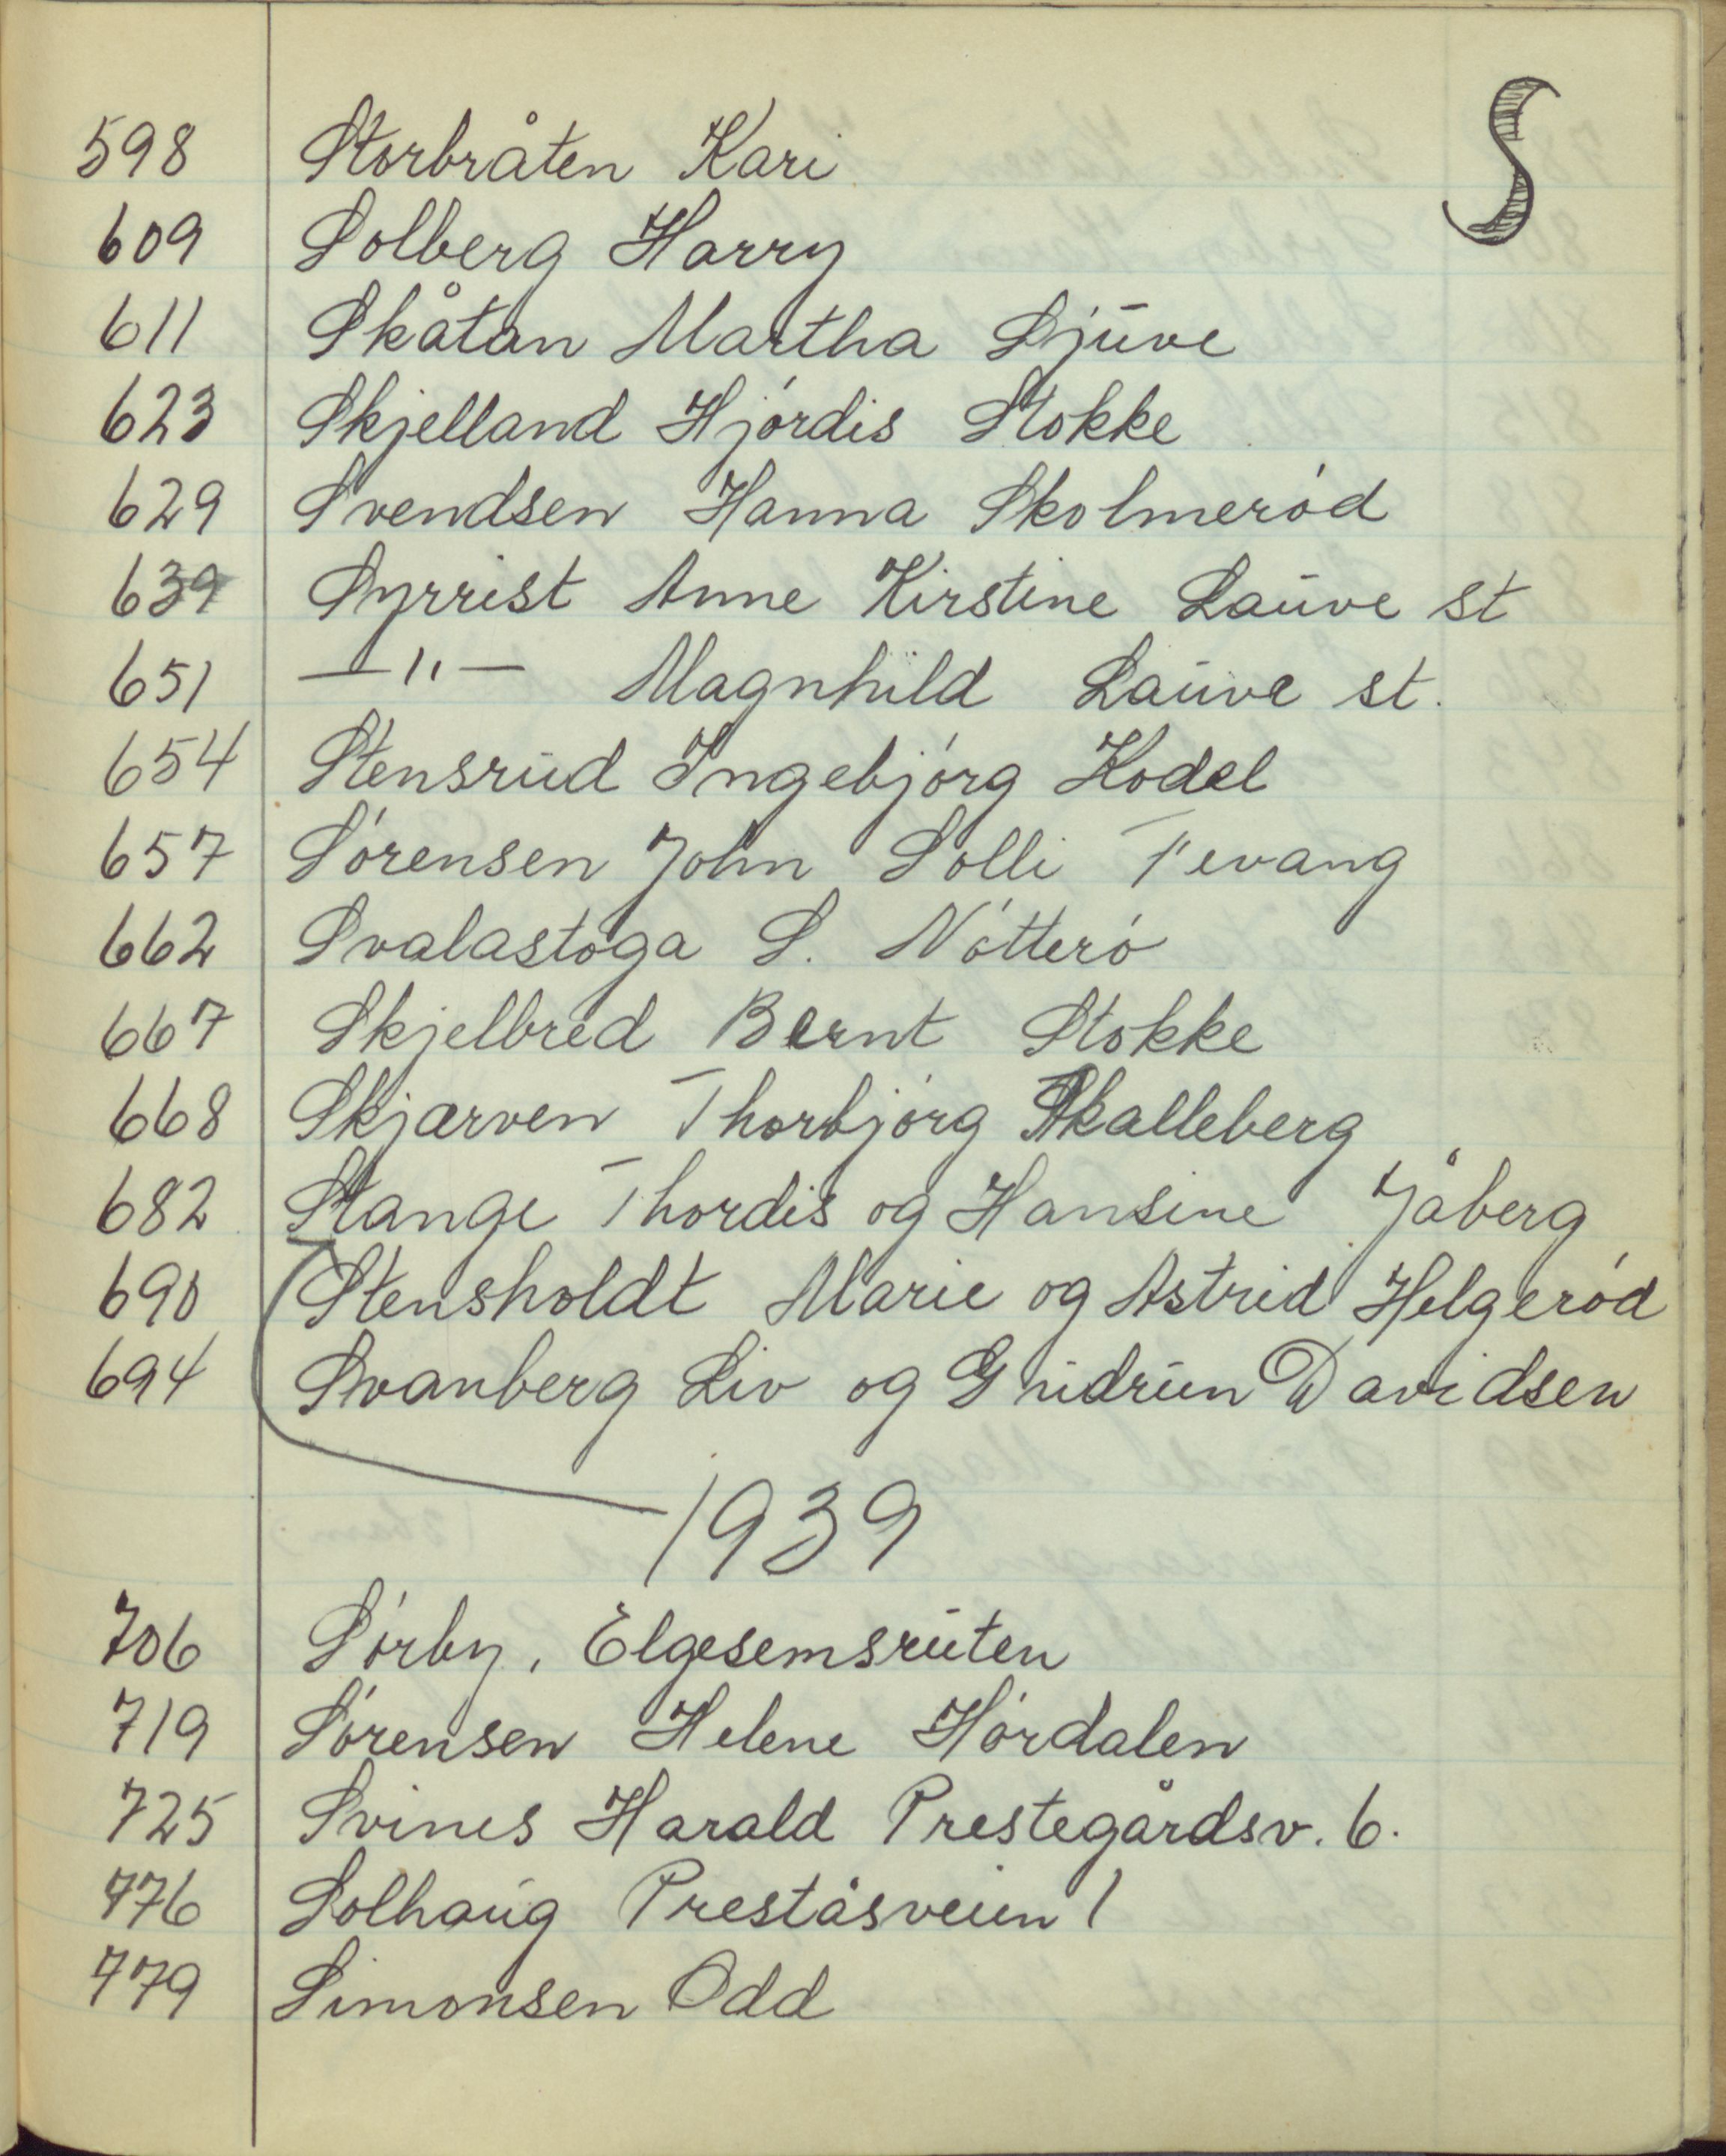 S
598 Storbråten Kari
609 Solberg Harry
611 Skåtan Martha Ljūve
623 Skjelland Hjórdis Stokke
629 Svendsen Hanna Skolmeród
639 Syrrist Anne Kirstine Laūve st
651 —"— Magnhild Laūve st.
654 Stensrūd Ingebjórg Kodal
657 Sórensen John Solli Tevang
662 Svalastoga S. Nótteró
667 Skjelbred Bernt Stokke
668 Skjærven Thorbjórg Skalleberg
682 Stange Thordis og Hansine Jåberg
690 Stensholdt Marie og Astrid Helgeród
694 Svanberg Liv og Gūdrūn Davidsen
1939
706 Sórby, Elgesemsrūten
719 Sórensen Helene Hórdalen
725 Svines Harald Prestegårdsv. 6.
776 Solhaūg Preståsveien 1
779 Simonsen Odd